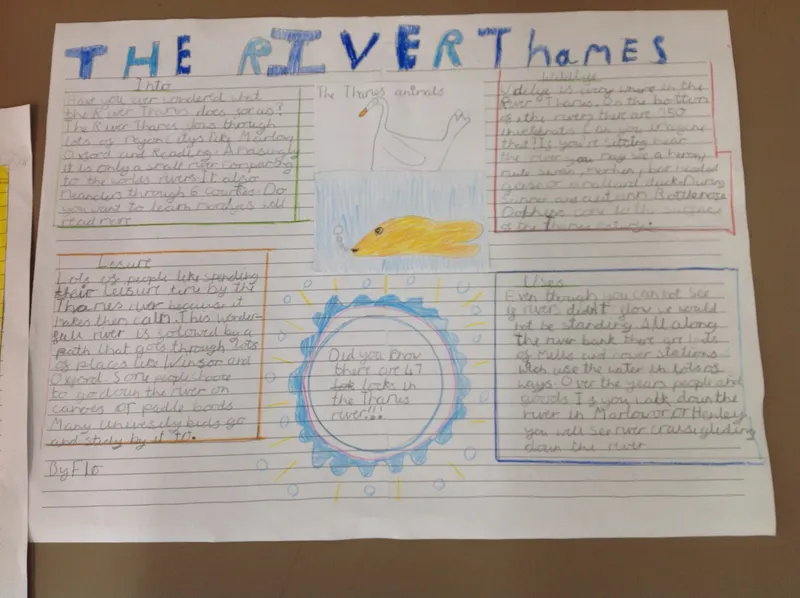 THE RIVER Thames
Intro
Have you ever wonderd what
the River Thames does for us?
The River Thames flows through
lots of citys like Marlow,
Oxford and Reading. Amasingly
it is only a small river comparing
to the worlds rivers. It also
meanders through 6 counties. Do
you want to learn more
read more
The Thames animals
Wildlife
Wildlife is every where in the
River Thames. On the bottom
of the river, there are 250
invertebrats can you imagine
that! If you're sitting near
the river you may see a heron,
mute swan, moorhen, bar headed
goose or a mallard duck. During
Summer and autumn Bottlenose
Dolphins come to the surface
of the Thames
Lesure
Lots of people like spending
their leisure time by the
Thames river because it
makes them calm. This wonder-
full river is folowed by a
path that gots through lots
of places like Winsor and
Oxford. Some people
to go down the river on
canoes or padle bords
Many university kids go
and study by it
Did you know
there are 47
locks in
the Thames
river!!!
Uses
Even though you can not see
if rivers didn't flow we would
not be standing. All along
the river bank there are lots
of Mills and power stations
wich use the water in lots of
ways. Over the years people and
goods If you walk down the
river in Marlow or Henley
you will see river cruise gliding
down the river
By Flo